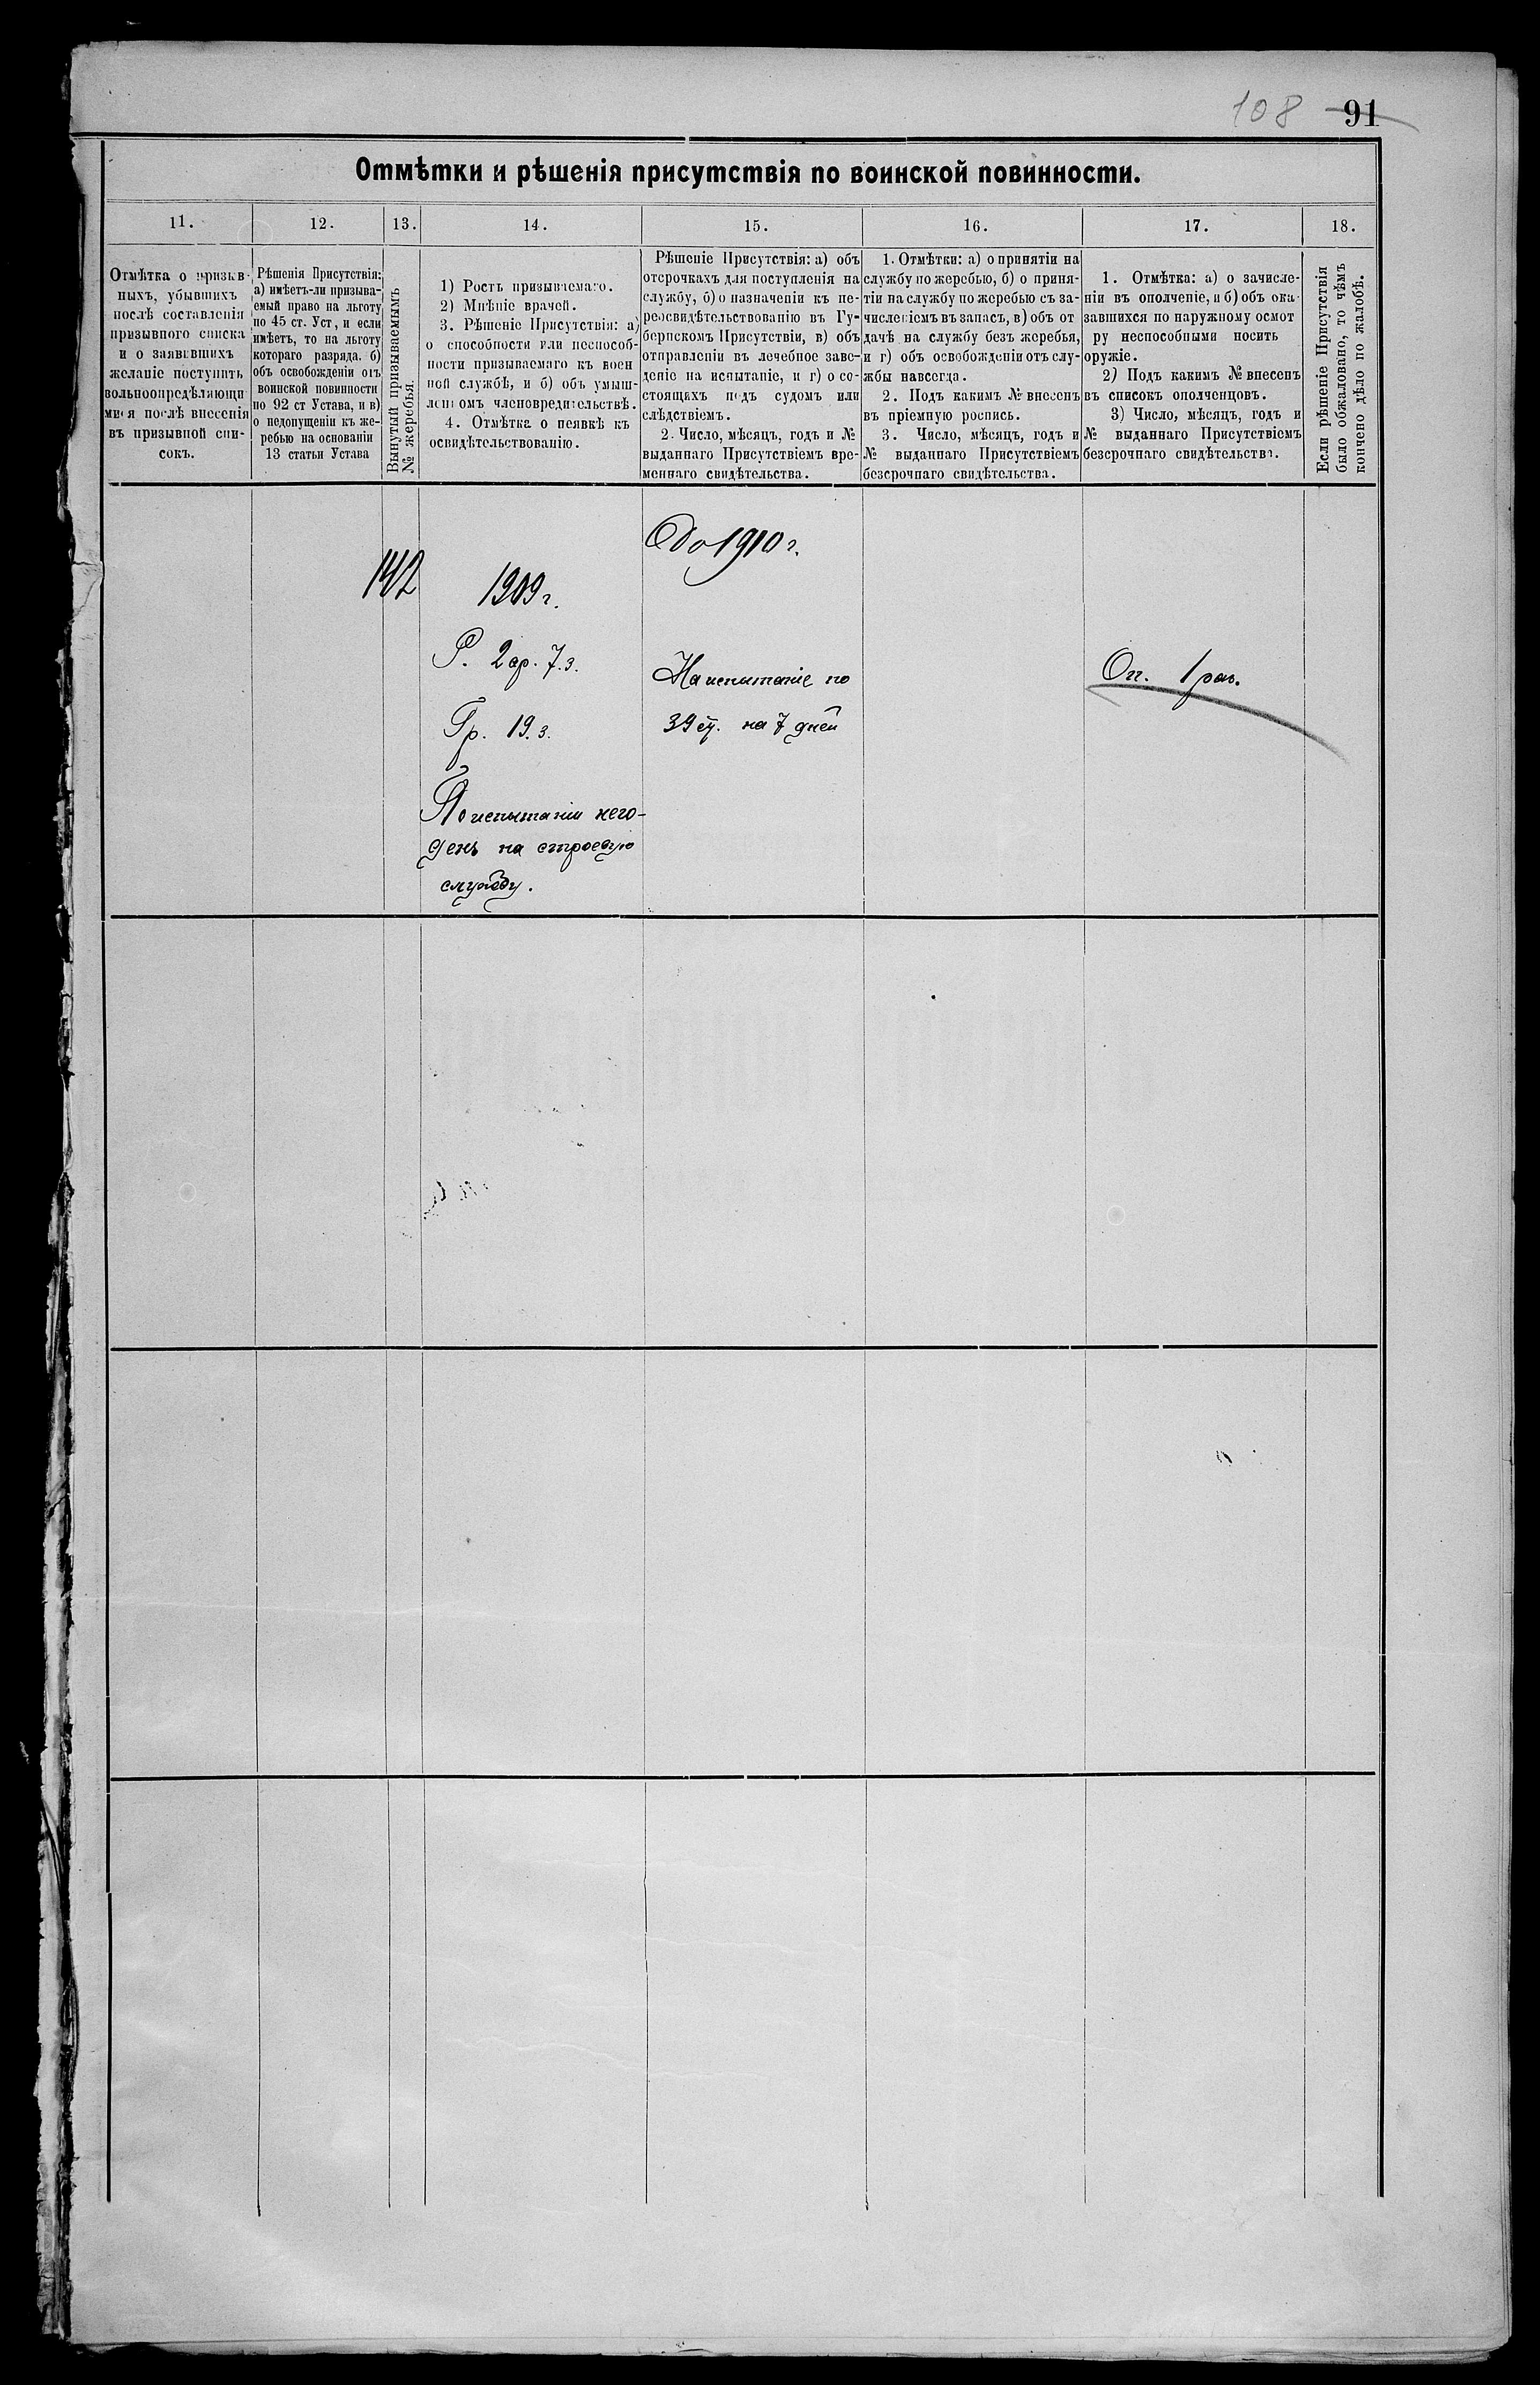 108 91
Отмѣтки и рѣшенія присутствія по воинской повинности.
11. 12. 13. 14. 15. 16. 17. 18.
Отмѣтка о призыв-
ныхъ, убывшихъ
послѣ составленія
призывного списка
и о заявившихъ
желаніе поступить
вольноопредѣляющи
мися послѣ внесенія
въ призывной спи-
сокъ.
Рѣшенія Присутствія:
а) имѣетъ-ли призыва-
емый право на льготу
по 45 ст. Уст, и если
имѣетъ, то на льготу
котораго разряда. б)
объ освобожденіи отъ
воинской повинности
по 92 ст Устава, и в)
о недопущеніи къ же-
ребью на основаніи
13 статьи Устава
Вынутый призываемымъ
№ жеребья.
1) Ростъ призываемаго.
2) Мнѣніе врачей.
3. Рѣшеніе Присутствія: а)
о способности или неспособ-
ности призываемаго къ воен
ной службѣ, и б) объ умыш-
ленномъ членовредительствѣ.
4. Отмѣтка о неявкѣ къ
освидѣтельствованію.
Рѣшеніе Присутствія: а) объ
отсрочкахъ для поступленія на
службу, б) о назначеніи къ пе-
реосвидѣтельствованію въ Гу-
бернскомъ Присутствіи, в) объ
отправленіи въ лечебное заве-
деніе на испытаніе, и г) о со-
стоящихъ подъ судомъ или
слѣдствіемъ.
2. Число, мѣсяцъ, годъ и №
выданнаго Присутствіемъ вре-
меннаго свидѣтельства.
1. Отмѣтки: а) о принятіи на
службу по жеребью, б) о приня-
тіи на службу по жеребью съ за-
численіемъ въ запасъ, в) объ от
дачѣ на службу безъ жеребья,
и г) объ освобожденіи отъ слу-
жбы навсегда.
2. Подъ какимъ № внесенъ
въ пріемную роспись.
3. Число, мѣсяцъ, годъ и
№ выданнаго Присутствіемъ
безсрочнаго свидѣтельства.
1. Отмѣтка: а) о зачисле-
ніи въ ополченіе, и б) объ ока-
завшихся по наружному осмот
ру неспособными носить
оружіе.
2) Подъ какимъ № внесенъ
въ списокъ ополченцовъ.
3) Число, мѣсяцъ, годъ и
№ выданнаго Присутствіемъ
безсрочнаго свидѣтельства.
Если рѣшеніе Присутствія
было обжаловано, то чѣмъ
кончено дѣло по жалобѣ.
142
1909 г.
Р. 2 ар. 7. з.
Гр. 19. з.
По испытаніи него-
денъ на строевую
службу.
До 1910 г.
На испытаніе по
39 ст. на 7 дней
Оп. 1 раз.